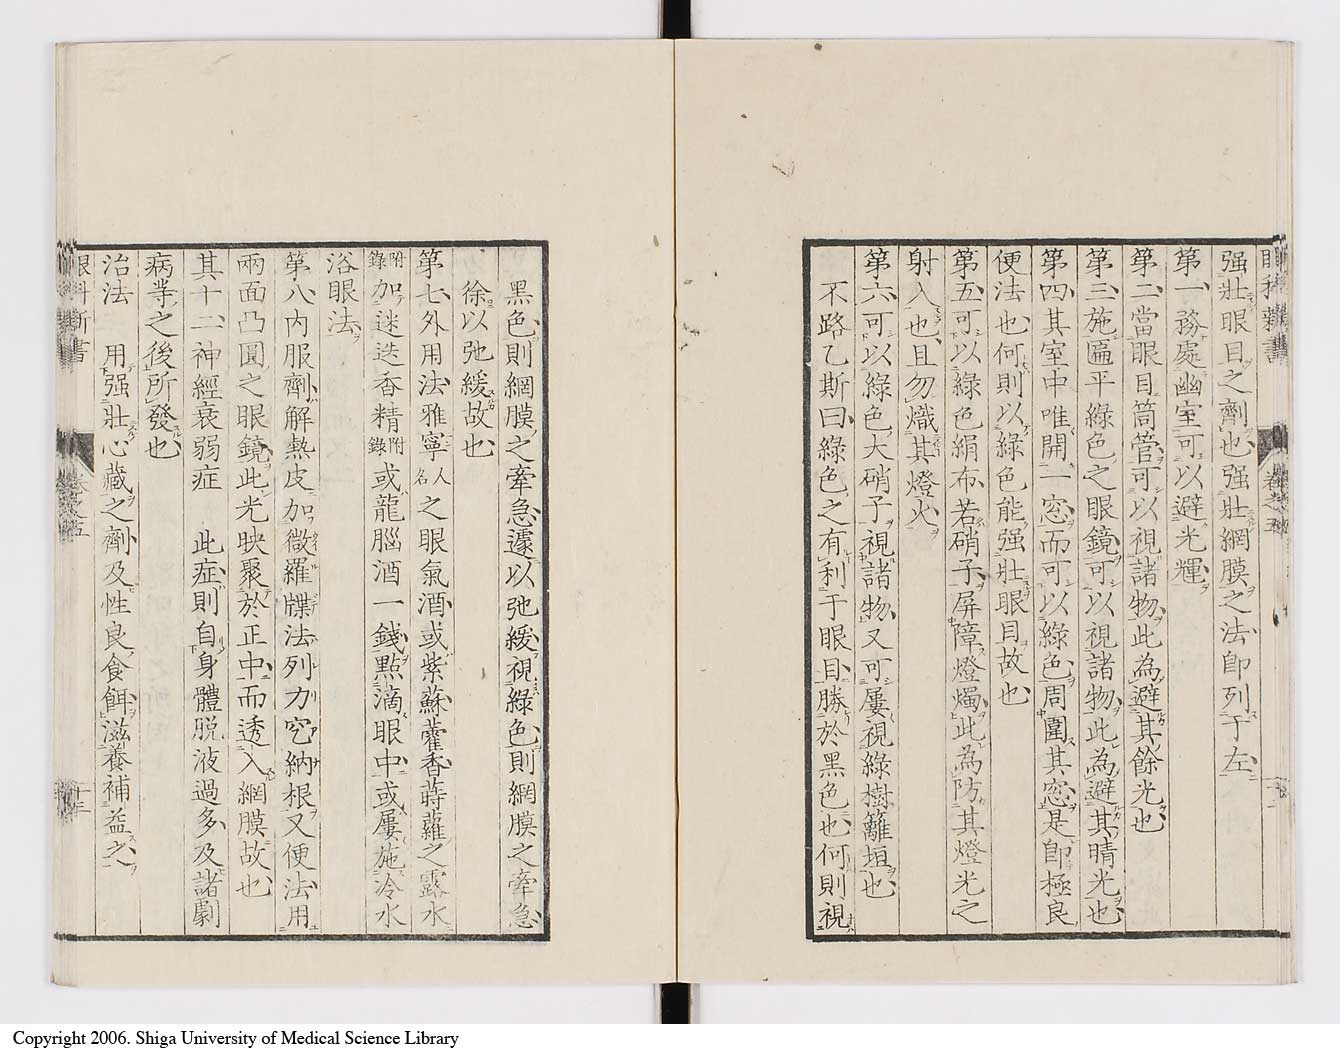 强壯眼目之劑也强壯網膜之法卽列于左
第一務處幽室可以避光輝
第二當眼目筒管可以視諸物此為避其餘光也
第三施匾平綠色之眼鏡可以視諸物此為避其晴光也
第四其室中唯開一窓而可以綠色周圍其窓是卽極良
便法也何則以綠色能强壯眼目故也
第五可以綠色絹布若硝子屏障燈燭此為防其燈光之
射入也且勿熾其燈火
第六可以綠色大硝子視諸物又可屢視綠樹籬垣也
不路乙斯曰綠色之有利于眼目勝於黑色也何則視
黑色則網膜之牽急遽以弛緩視綠色則網膜之牽急
徐以弛緩故也
第七外用法雅寧人名之眼氣酒或紫蘇藿香蒔蘿之露水
附錄加迷迭香精附錄或龍腦酒一錢點滴眼中或屢施冷水
浴眼法
第八内服劑解熱皮加微羅牒法列力究納根又便法用
兩面凸圓之眼鏡此光映聚於正中而透入網膜故也
其十二神經衰弱症 此症則自身體脱液過多及諸劇
病等之後所發也
治法 用强壯心藏之劑及性良食餌滋養補益之
眼科新書 卷之五 十三
Copyright 2006. Shiga University of Medical Science Library